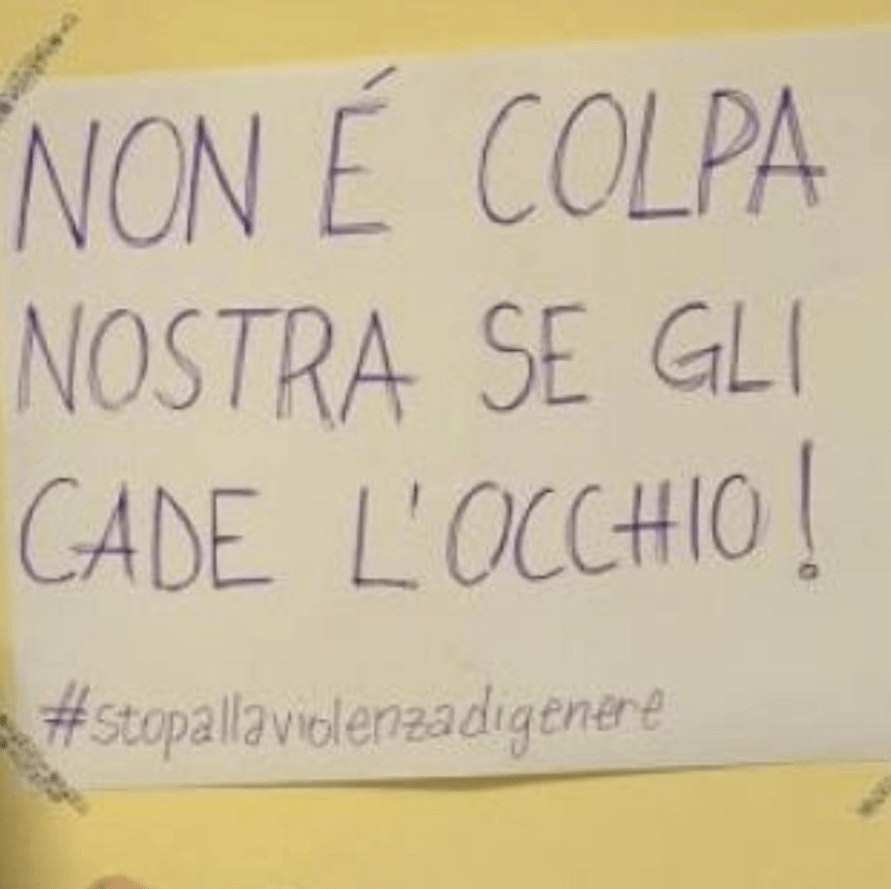 NON É COLPA
NOSTRA SE GLI
CADE L'OCCHIO!
#stopallaviolenzadigenere